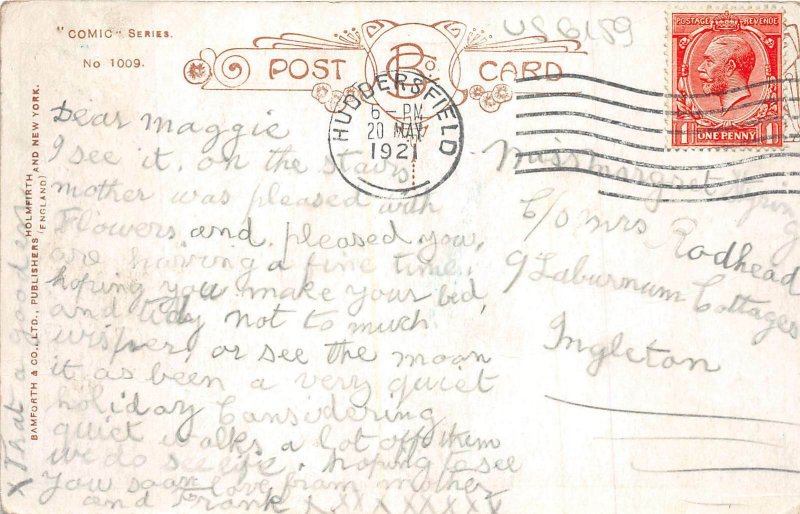 "COMIC" SERIES.
No 1009.
POST CARD
US 6189
BAMFORTH & CO., LTD., PUBLISHERS HOLMFIRTH AND NEW YORK.
(ENGLAND)
HUDDERSFIELD
6 - PM
20 MAY
1921
POSTAGE REVENUE
1 ONE PENNY 1
Dear Maggie
I see it. on the stairs
mother was pleased with
Flowers and. pleased you,
are having a fine time.
hoping you make your bed,
and tidy not to much
wisper, or see the moon
it as been a very quiet
holiday Cansidering
quiet walks a lot off them
we do see life. hoping to see
you soon love from mother
and Frank x x x x x x x x x
x That a good
Miss Margaret
C/o Mrs Rodhead
9 Laburnum Cottages
Ingleton